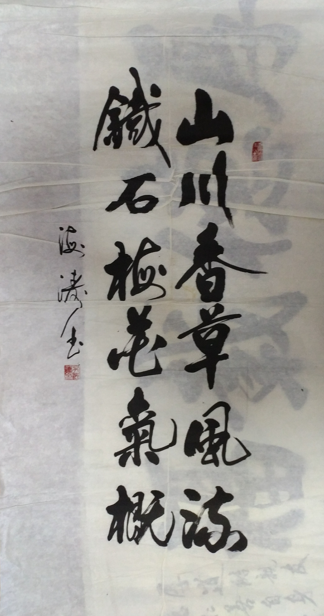 山川香草風流
鐵石梅花氣概
海濤人書